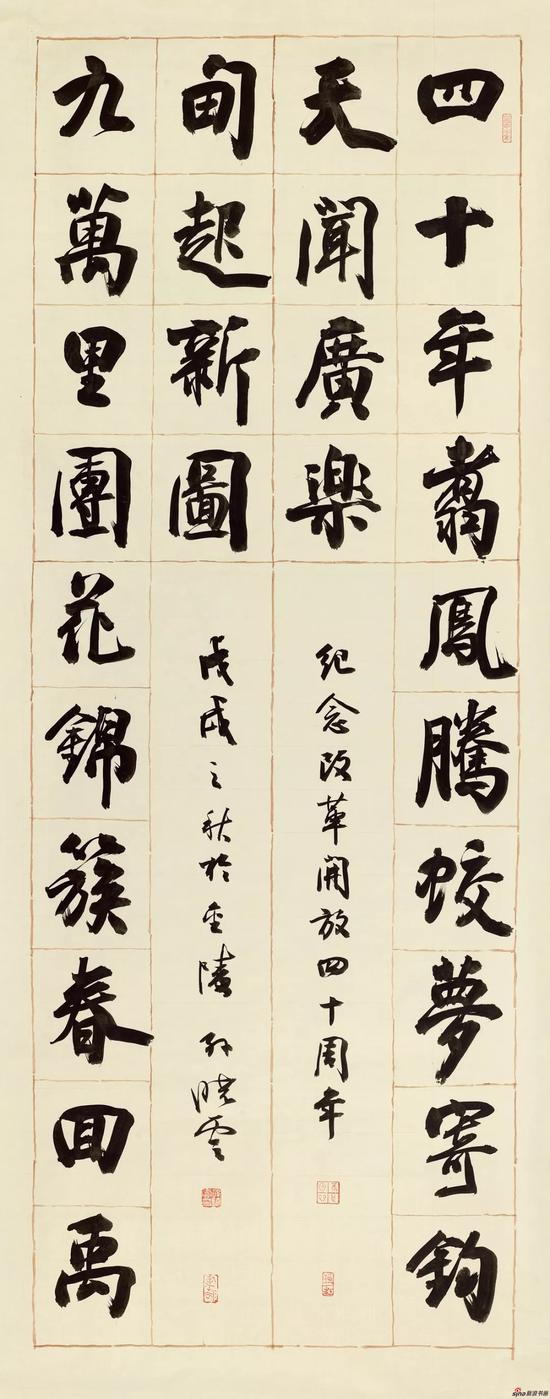 四十年翥鳳騰蛟夢寄鈞
天聞廣樂
紀念改革開放四十周年
九萬里團花錦簇春回禹
甸起新圖
戊戌之秋於金陵 孫曉雲
sina 新浪书画